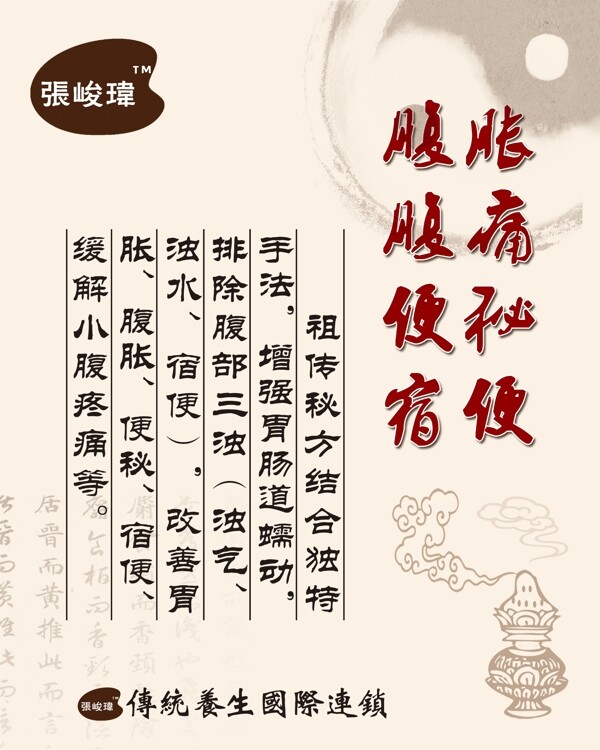 張峻瑋™
腹胀
腹痛
便秘
宿便
祖传秘方结合独特
手法，增强胃肠道蠕动，
排除腹部三浊（浊气、
浊水、宿便），改善胃
胀、腹胀、便秘、宿便、
缓解小腹疼痛等。
居晋而黄推此而言
張峻瑋™ 傳統養生國際連鎖